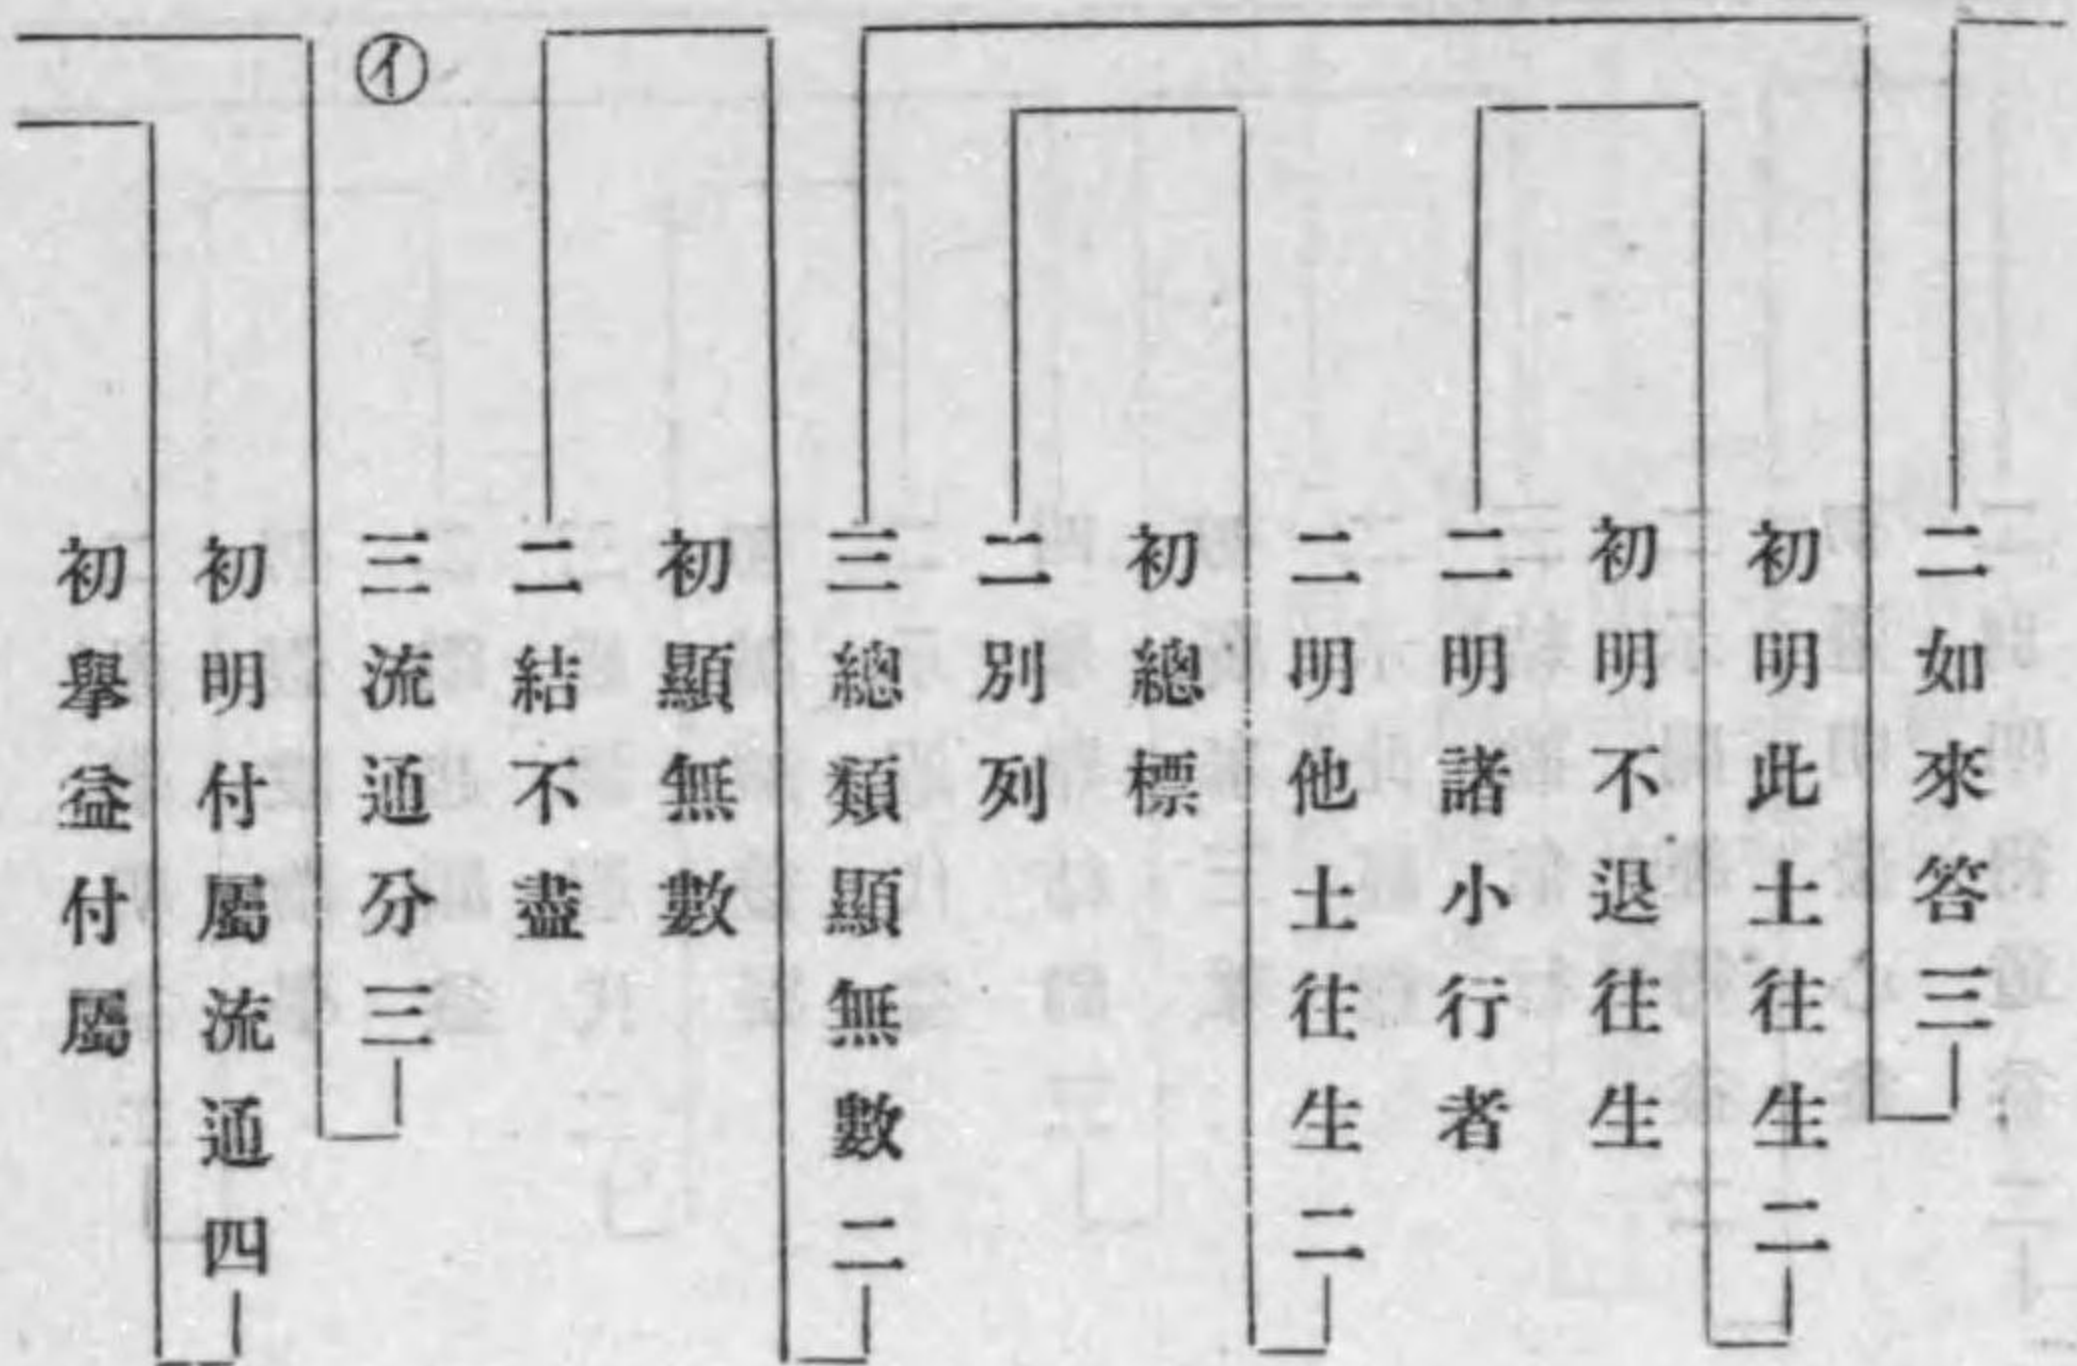 二如來答三
初明此土往生二
初明不退往生
二明諸小行者
二明他土往生二
初總標
二別列
三總類顯無數二
初顯無數
二結不盡
㋑
三流通分三
初明付屬流通四
初擧益付屬